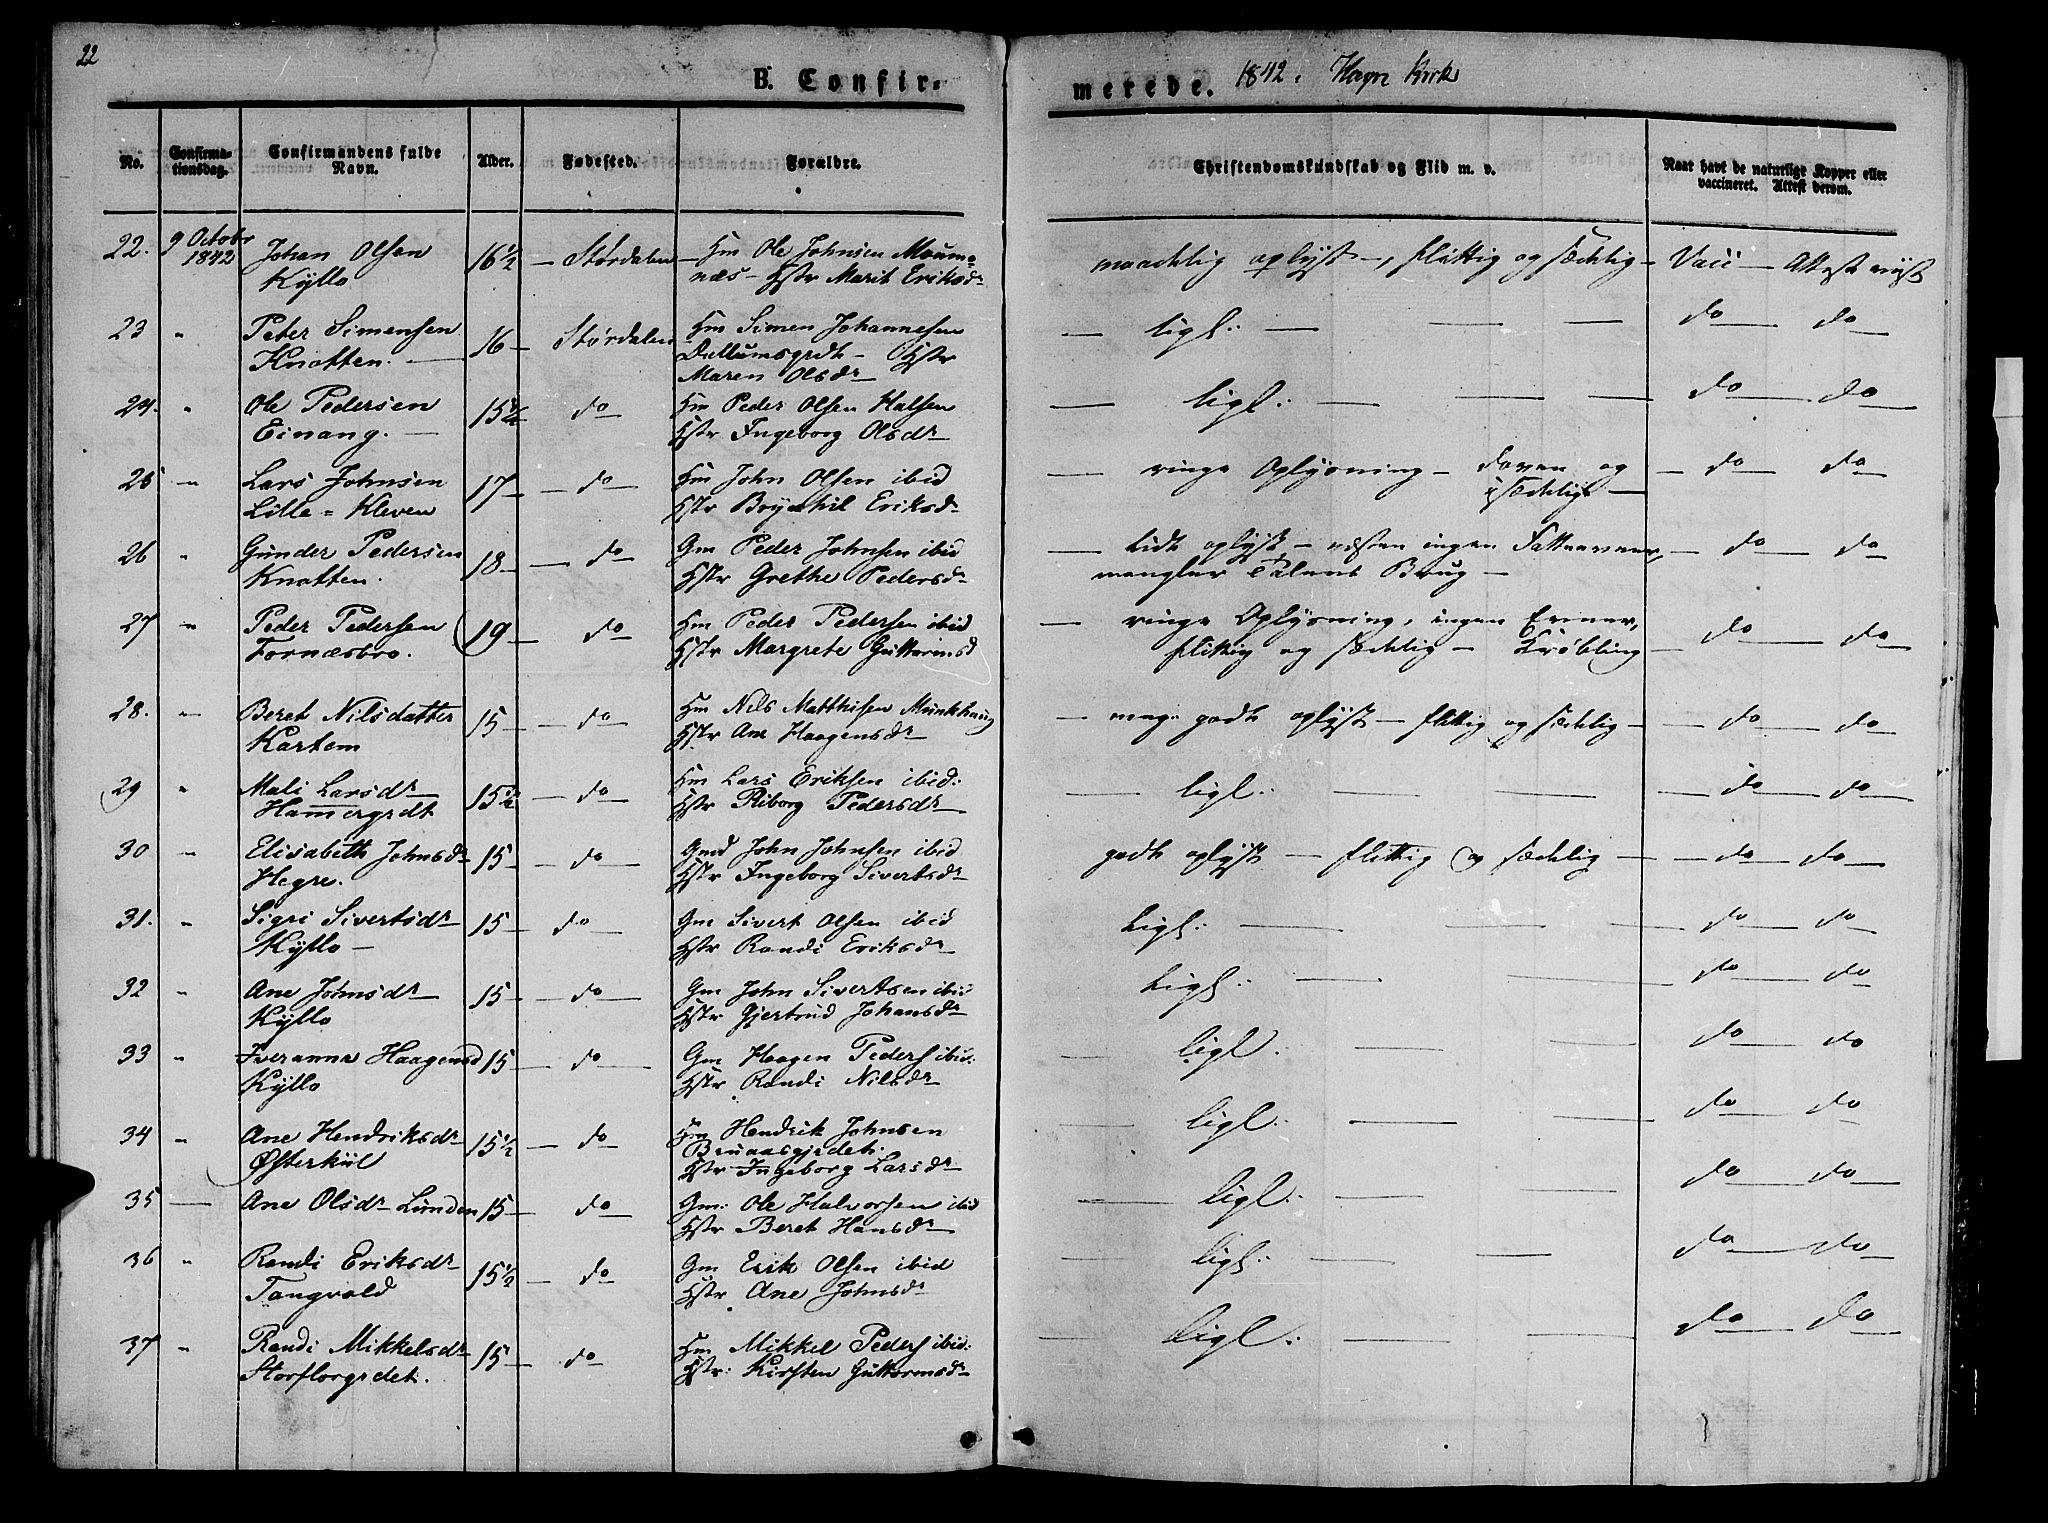 22
B. Confir=
merede. 1842.
No.
Confirma-
tionsdag.
Confirmandens fulde
Navn.
Alder.
Fødested.
Forældre.
Christendomskundskab og Flid m. v.
Naar havt de naturlige Kopper eller
vaccineret. Attest derom.
22. 9 Octobr
1842
Johan Olsen
Kyllo
16½ — Størdalen
Hm Ole Johnsen
næs — Hstr Marit Eriksdr
maadelig oplyst —, flittig og sædelig — Vacc — Attest
23 " Peter Simensen
Knotten. —
16 — Størdalen
Hm Simen Johannesen
— Hstr
Maren Olsdr
— ligl: — — — do — do
24. " Ole Pedersen
Einang. —
15½ do
Hm Peder Olsen Halsen
Hstr Ingeborg Olsdr
— ligl: — — — do — do —
25 " Lars Johnsen
Lille = Kleven
17 — do
Hm John Olsen ibid
Hstr Eriksdr
— ringe Oplysning — doven og
usædelig —
— do — do
26 " Gunder Pedersen
Knotten.
18 — do
Gm Peder Johnsen ibid
Hstr Grethe Pedersdr
— lidt oplyst — næsten ingen
mangler Talens Brug —
— do — do
27 " Peder Pedersen
Fornæsbro.
19 — do
Hm Peder Pedersen ibid
Hstr Margrete Guttormsd
— ringe Oplysning, ingen
flittig og sædelig — Krøbling —
do — do
28. " Beret Nilsdatter
Kartem
15 — do
Hm Nils Matthisen Munkhaug
Hstr Ane Haagensdr
— godt oplyst — flittig og sædelig —
— do — do
29 " Mali Larsdr
Hammergrdt
15½ — do
Hm Lars Eriksen ibid:
Hstr Riborg Pedersdr
— ligl: — — — do — do —
30 " Elisabeth Johnsdr
Hegre.
15 — do
Gmd John Johnsen ibid
Hstr Ingeborg Sivertsdr
godt oplyst — flittig og sædelig — — do — do —
31. " Sigri Sivertsdr
Kyllo —
15 — do
Gm Sivert Olsen ibid
Hstr Randi Eriksdr
ligl: — — — do — do
32 " Ane Johnsdr
Kyllo
15 — do —
Gm John Sivertsen ibid
Hstr Gjertrud Johansdr
ligl: — — — do — do
33 " Iveranna Haagensd
Kyllo
15 — do —
Gm Haagen Peders ibid:
Hstr Randi Nilsdr
— ligl. — — do — do
34 " Ane Hendriksdr
Østerkiil
15½ — do
Hm Hendrik Johnsen
Bruaasgjrdet.
Hstr Ingeborg Larsdr
ligl: — — do — do
35 — Ane Olsdr Lunden 15 — do
Gm: Ole Halvorsen ibid
Hstr Beret Hansdr
— ligl: — — do — do
36 " Randi Eriksdr
Tangvold
15½ — do
Gm Erik Olsen ibid
Hstr Ane Johnsdr
— ligl: — — do — do
37 " Randi Mikkelsdr
Storflorgrdet.
15 — do
Hm Mikkel Peders ibid:
Hstr: Kirsten Guttormsdr
— ligl: — — do — do